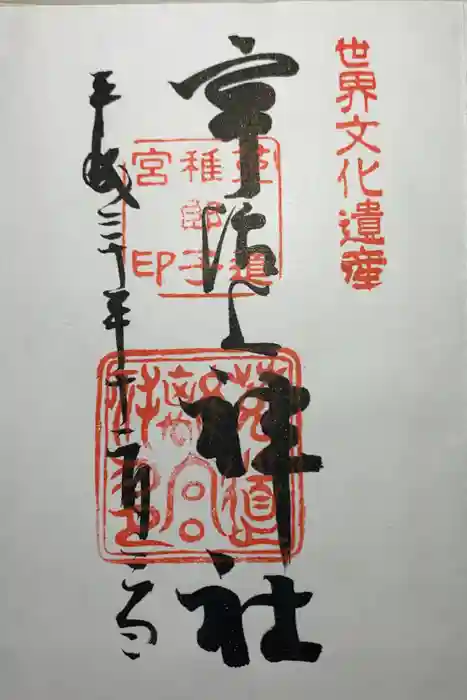 世界文化遺産
宇治上神社
菟道
稚郎子
宮印
平成三十年十二月二日